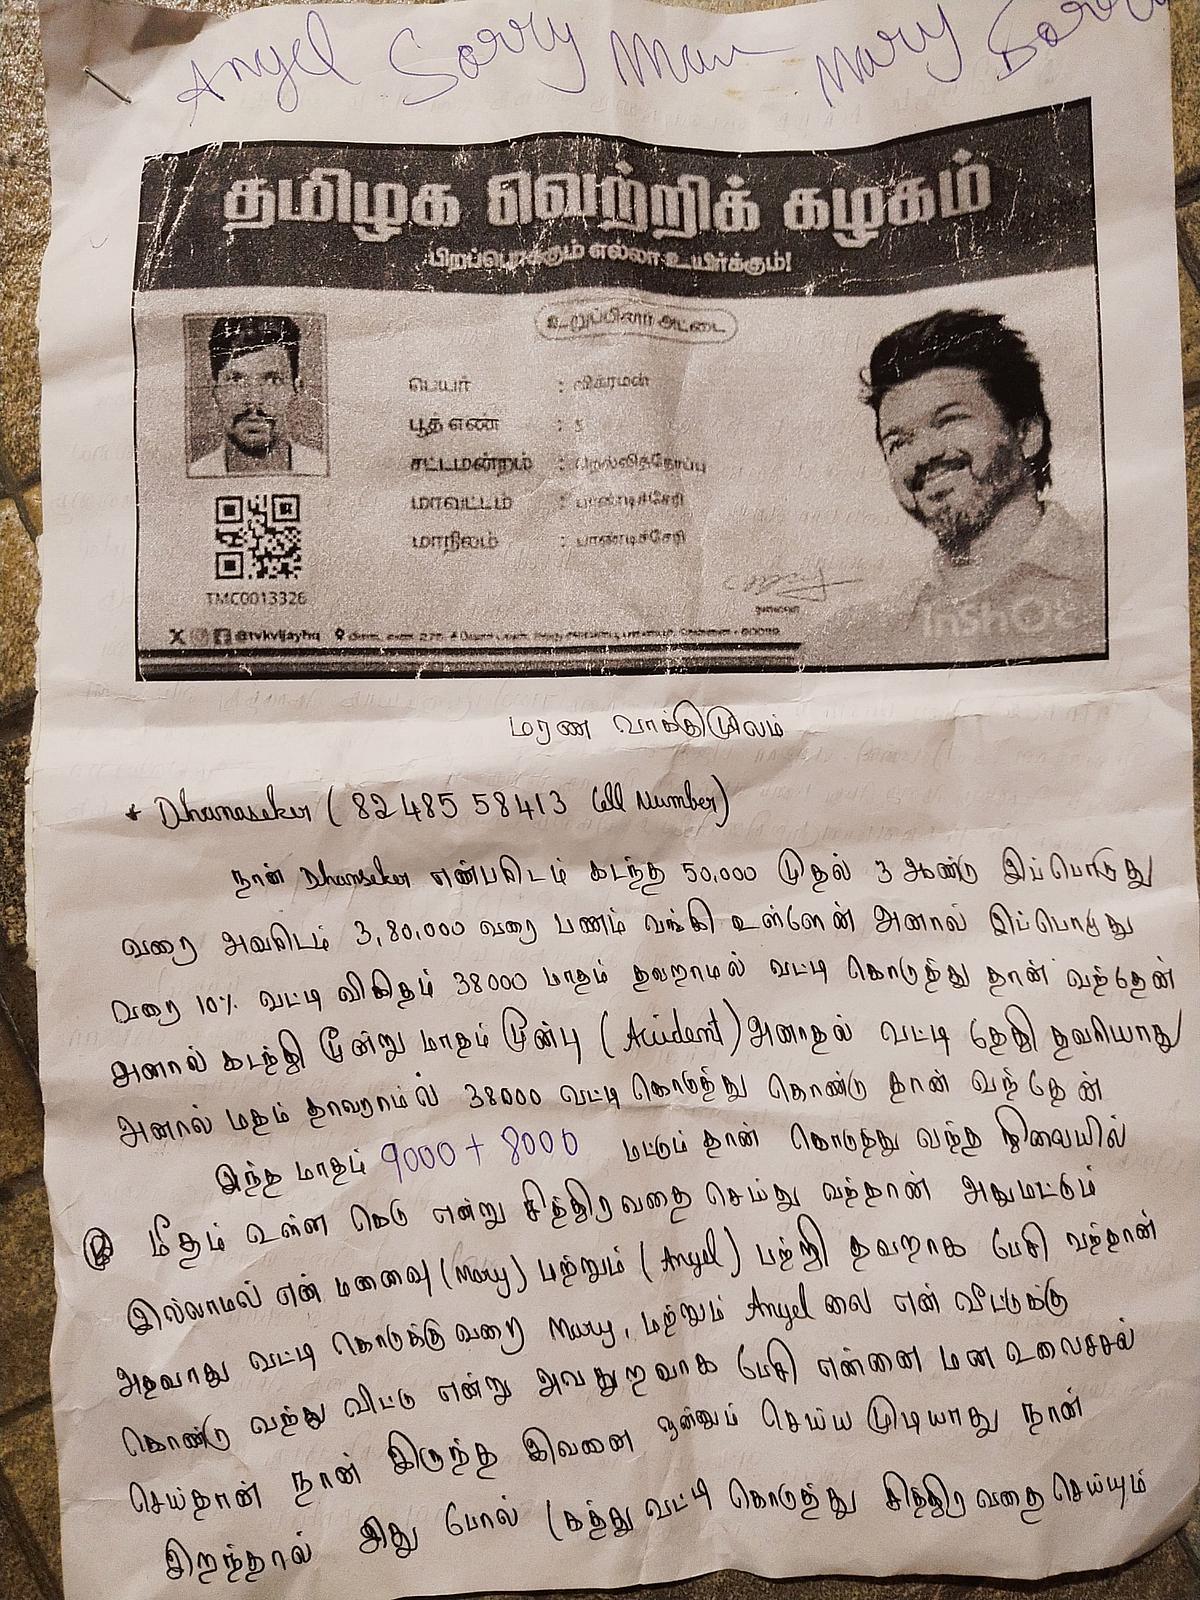 Angel Sorry Mani Mary Sorry
தமிழக வெற்றிக் கழகம்
பிறப்பொக்கும் எல்லா உயிர்க்கும்!
உறுப்பினர் அட்டை
பெயர் : விக்ரமன்
பூத் எண் : 5
சட்டமன்றம் : நெல்லித்தோப்பு
மாவட்டம் : பாண்டிச்சேரி
மாநிலம் : பாண்டிச்சேரி
TMC0013326
தலைவர்
@tvkvijayhq
InShOt
மரண வாக்குமூலம்
* Dhanaseker (82485 58413 Cell Number)
நான் Dhanseker என்பவரிடம் கடந்த 50,000 முதல் 3 ஆண்டு இப்பொழுது
வரை அவரிடம் 3,80,000 வரை பணம் வங்கி உள்ளேன் அனால் இப்பொழுது
வரை 10% வட்டி விகிதம் 38000 மாதம் தவறாமல் வட்டி கொடுத்து தான் வந்தேன்
அனால் கடந்தி மூன்று மாதம் முன்பு (Accident) அனாதல் வட்டி தேதி தவறியாது
அனால் மதம் தாவறாமல் 38000 வட்டி கொடுத்து கொண்டு தான் வந்தேன்
இந்த மாதம் 9000 + 8000 மட்டும் தான் கொடுத்து வந்த நிலையில்
மீதம் உள்ள கெடு என்று சித்திரவதை செய்து வந்தான் அதுமட்டும்
இல்லாமல் என் மனைவு (Mary) மற்றும் (Angel) பற்றி தவறாக பேசி வந்தான்
அதவாது வட்டி கொடுக்கு வறை Mary, மற்றும் Angel லை என் வீட்டுக்கு
கொண்டு வந்து விட்டு என்று அவதுறவாக பேசி என்னை மன உலைச்சல்
செய்தான் நான் இருந்த இவனை ஒன்னும் செய்ய முடியாது நான்
இறந்தால் இது போல் (கந்து வட்டி கொடுத்து சித்திரவதை செய்யும்